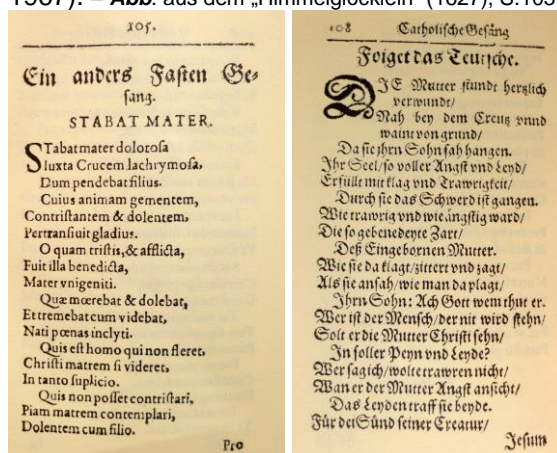 – Abb. aus dem „Himmelglöcklein“ (1627), S.105
105.
Ein anders Faſten Ge-
ſang.
STABAT MATER.
STabat mater doloroſa
Iuxta Crucem lachrymoſa,
Dum pendebat filius.
Cuius animam gementem,
Contriſtantem & dolentem,
Pertranſiuit gladius.
O quam triſtis, & afflicta,
Fuit illa benedicta,
Mater vnigeniti.
Quæ mœrebat & dolebat,
Et tremebat cum videbat,
Nati pœnas inclyti.
Quis eſt homo qui non fleret,
Chriſti matrem ſi videret,
In tanto ſuplicio.
Quis non poſſet contriſtari,
Piam matrem contemplari,
Dolentem cum filio.
Pro
108 Catholiſche Geſäng
Folget das Teutſche.
DIE Mutter ſtundt hertzlich
verwundt/
Nah bey dem Creutz vnnd
waint von grund/
Da ſie jhrn Sohn ſah hangen.
Ihr Seel/ ſo voller Angſt vnd Leyd/
Erfüllt mit klag vnd Trawrigkeit/
Durch ſie das Schwerd iſt gangen.
Wie trawrig vnd wie ängſtig ward/
Die ſo gebenedeyte Zart/
Deß Eingebornen Mutter.
Wie ſie da klagt/ zittert vnd zagt/
Als ſie anſah/ wie man da plagt/
Ihrn Sohn: Ach Gott wem thut er.
Wer iſt der Menſch/ der nit wird ſtehn/
Solt er die Mutter Chriſti ſehn/
In ſoller Peyn vnd Leyde?
Wer ſag ich/ wolte trawren nicht/
Wan er der Mutter Angſt anſicht/
Das Leyden traff ſie beyde.
Für der Sünd ſeiner Creatur/
Jeſum